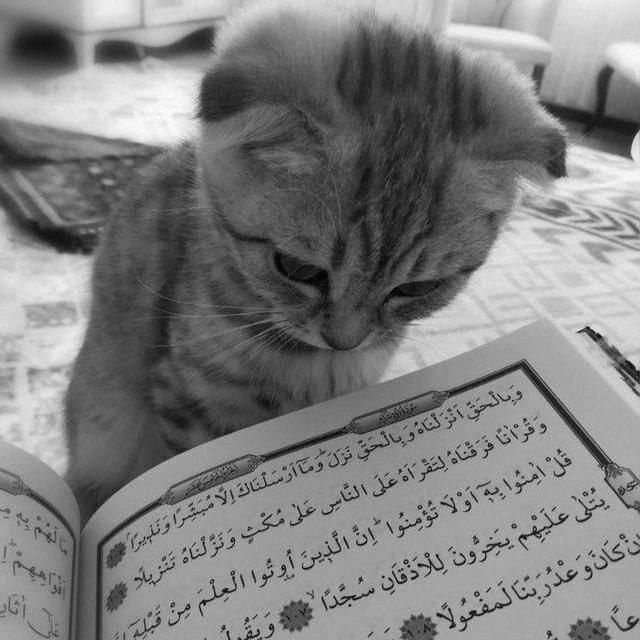 وَبِالْحَقِّ اَنْزَلْنَاهُ وَبِالْحَقِّ نَزَلَ وَمَٓا اَرْسَلْنَاكَ اِلَّا مُبَشِّرًا وَنَذِيرًا
وَقُرْاٰنًا فَرَقْنَاهُ لِتَقْرَاَهُ عَلَى النَّاسِ عَلٰى مُكْثٍ وَنَزَّلْنَاهُ تَنْزِيلًا
قُلْ اٰمِنُوا بِهٖٓ اَوْ لَا تُؤْمِنُوا اِنَّ الَّذِينَ اُوتُوا الْعِلْمَ مِنْ قَبْلِهٖٓ
يُتْلٰى عَلَيْهِمْ يَخِرُّونَ لِلْاَذْقَانِ سُجَّدًا ١٠٧
اِنْ كَانَ وَعْدُ رَبِّنَا لَمَفْعُولًا ١٠٨
مَا لَهُمْ بِهٖ
اَفْوَاهِهِمْ
عَلٰٓى